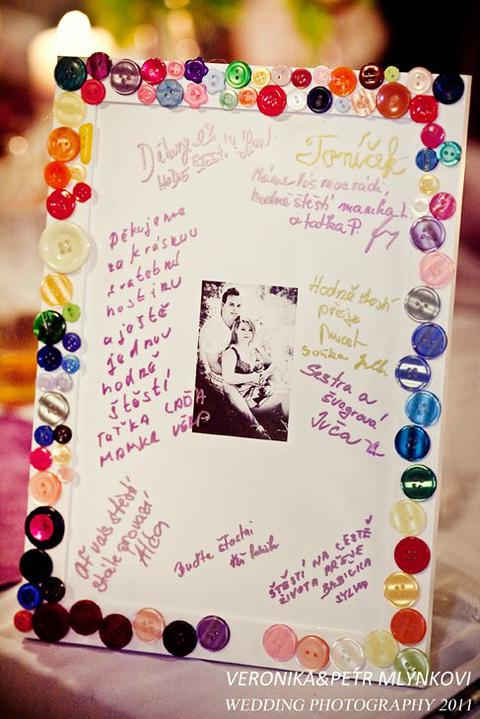 Toníček
Máme Vás moc rádi,
hodně štěstí mamka L.
a taťka P.
Děkujeme
za krásnou
svatební
hostinu
a ještě
jednou
hodně
štěstí
TAŤKA LAĎA
MAMKA VĚRA
Hodně štěstí
přeje
Sestra a
švagrová
Ať vás štěstí
stále provází
Buďte šťastni
ŠTĚSTÍ NA CESTĚ
ŽIVOTA PŘEJE
BABIČKA
SYLVA
VERONIKA&PETR MLÝNKOVI
WEDDING PHOTOGRAPHY 2011